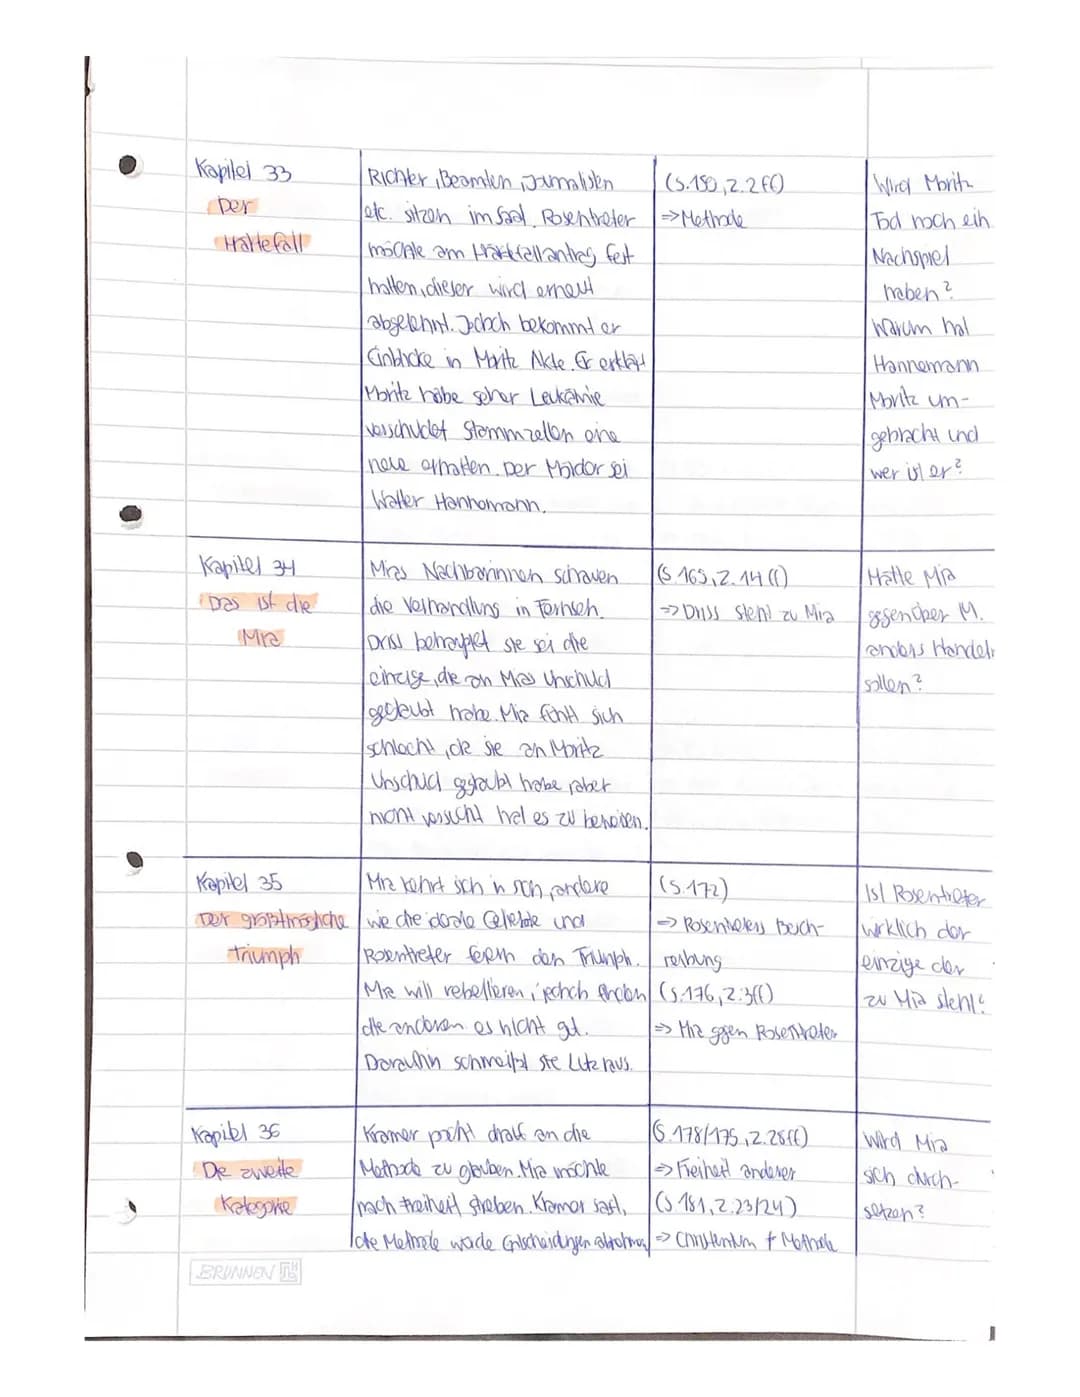 Kapitel 33
Der
Härtefall
Richter, Beamten, Journalisten
etc. sitzen im Saal. Rosentreter
möchte am Härtefallantrag fest
halten, dieser wird erneut
abgelehnt. Jedoch bekommt er
Einblicke in Moritz Akte. Er erklärt
Moritz habe seher Leukämie
verschuldet Stammzellen eine
neue erhalten. Der Mörder sei
Walter Hannemann.
(S.150, Z.2ff)
=> Methode
Wird Moritz
Tod noch ein
Nachspiel
haben?
Warum hat
Hannemann
Moritz um-
gebracht und
wer ist er?
Kapitel 34
Das ist die
Mia
Mias Nachbarinnen schauen
die Verhandlung in Fernseh.
Driss behauptet sie sei die
einzige, die an Mias Unschuld
geglaubt habe. Mia fühlt sich
schlecht, da sie an Moritz
Unschuld geglaubt habe, aber
nicht versucht hat es zu beweisen.
(S.165, Z.14ff)
=> Driss steht zu Mia
Hätte Mia
gegenüber M.
anders Handeln
sollen?
Kapitel 35
Der größtmögliche
Triumph
Mia kehrt sich in sich, andere
wie die ideale Geliebte und
Rosentreter feiern den Triumph.
Mia will rebellieren, jedoch finden
die anderen es nicht gut.
Daraufhin schmeißt sie Lutz raus.
(S.172)
=> Rosentreters Besch-
reibung
(S.176, Z.3ff)
=> Mia gegen Rosentreter
Ist Rosentreter
wirklich der
einzige der
zu Mia steht?
Kapitel 36
Die zweite
Kategorie
Kramer pocht drauf an die
Methode zu glauben. Mia möchte
nach Freiheit streben. Kramer sagt,
die Methode würde Entscheidungen abnehmen
(S.178/175, Z.28ff)
=> Freiheit anderer
(S.181, Z.23/24)
=> Christentum + Methode
Wird Mia
sich durch-
setzen?
BRUNNEN